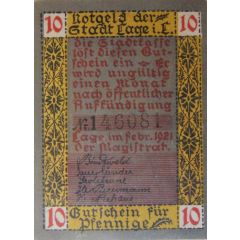 10 Notgeld der 10
Stadt Lage i. L.
die Stadtkasse
löst diesen Gut
schein ein - Er
wird ungültig
einen Monat
nach öffentlicher
Aufkündigung
№ 146081
Lage, im febr. 1921
der Magistrat.
10 Gutschein für 10
Pfennige